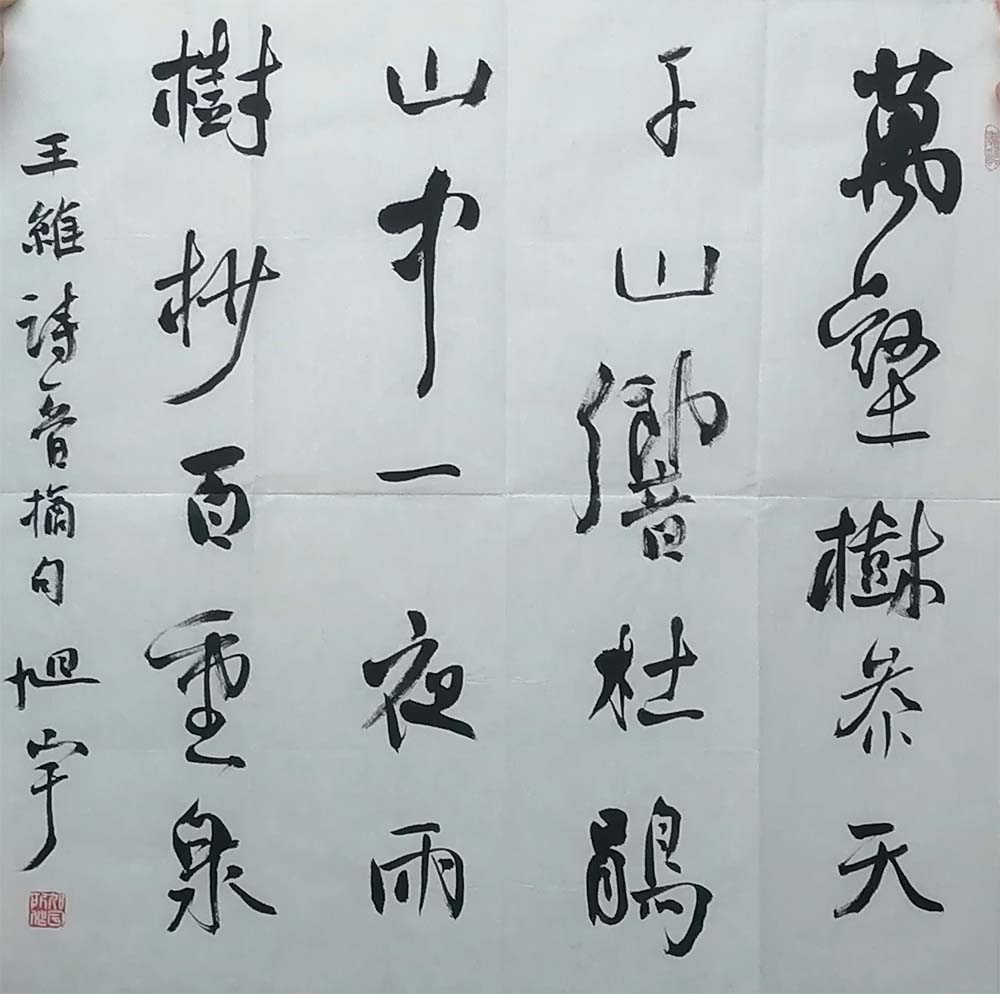 萬壑樹參天
千山響杜鵑
山中一夜雨
樹杪百重泉
王維詩一首摘句 旭宇